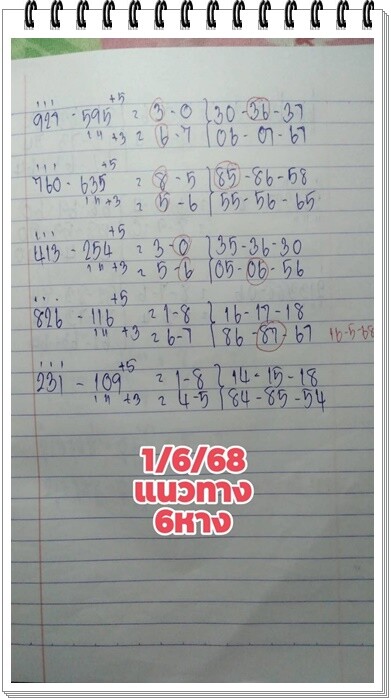 +5
927 - 595 = 3-0 } 30-36-37
+3 = 6-7 } 06-07-67
+5
760 - 635 = 8-5 } 85-86-58
+3 = 5-6 } 55-56-65
+5
413 - 254 = 3-0 } 35-36-30
+3 = 5-6 } 05-06-56
+5
826 - 116 = 1-8 } 16-17-18
+3 = 6-7 } 86-87-67 16-5-68
+5
231 - 109 = 1-8 } 14-15-18
+3 = 4-5 } 84-85-54
1/6/68
แนวทาง
6หาง